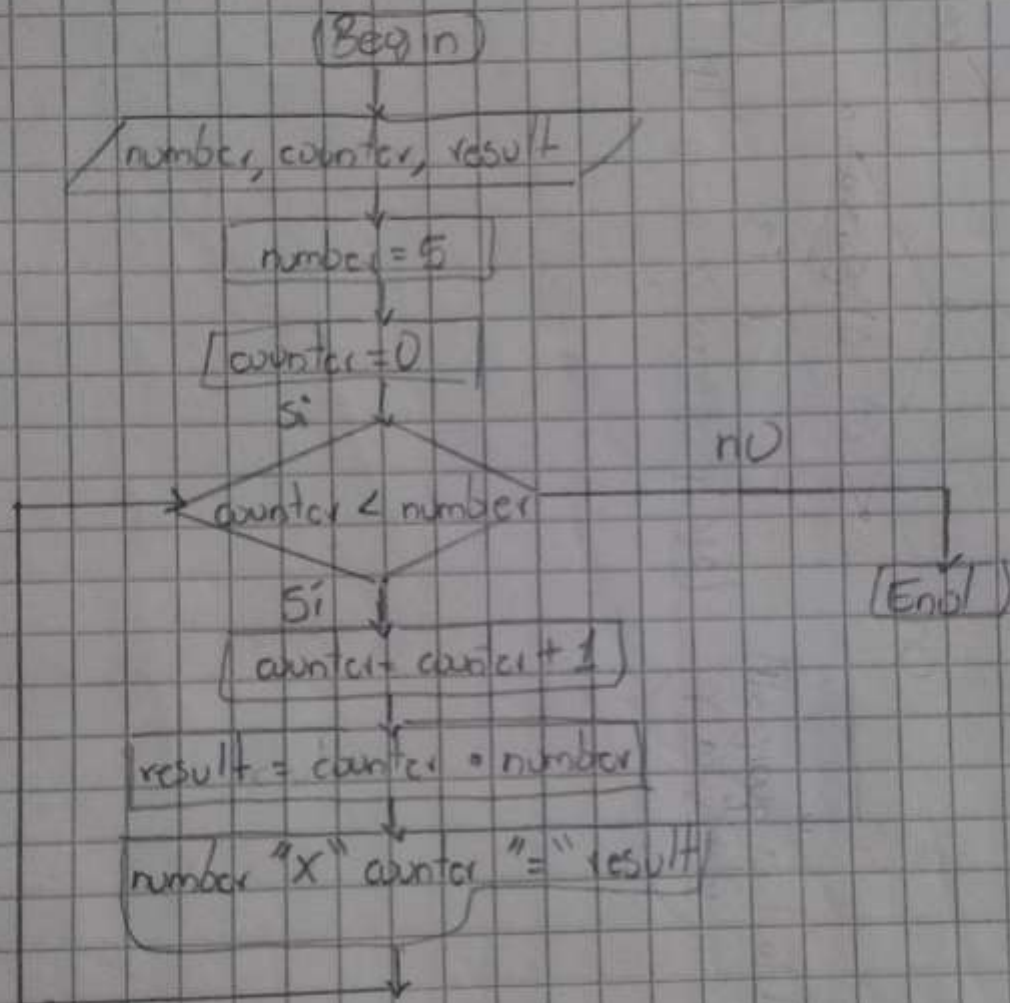 Begin
number, counter, result
number = 5
counter = 0
Si
no
counter < number
End
Si
counter = counter + 1
result = counter • number
number "X" counter "=" result